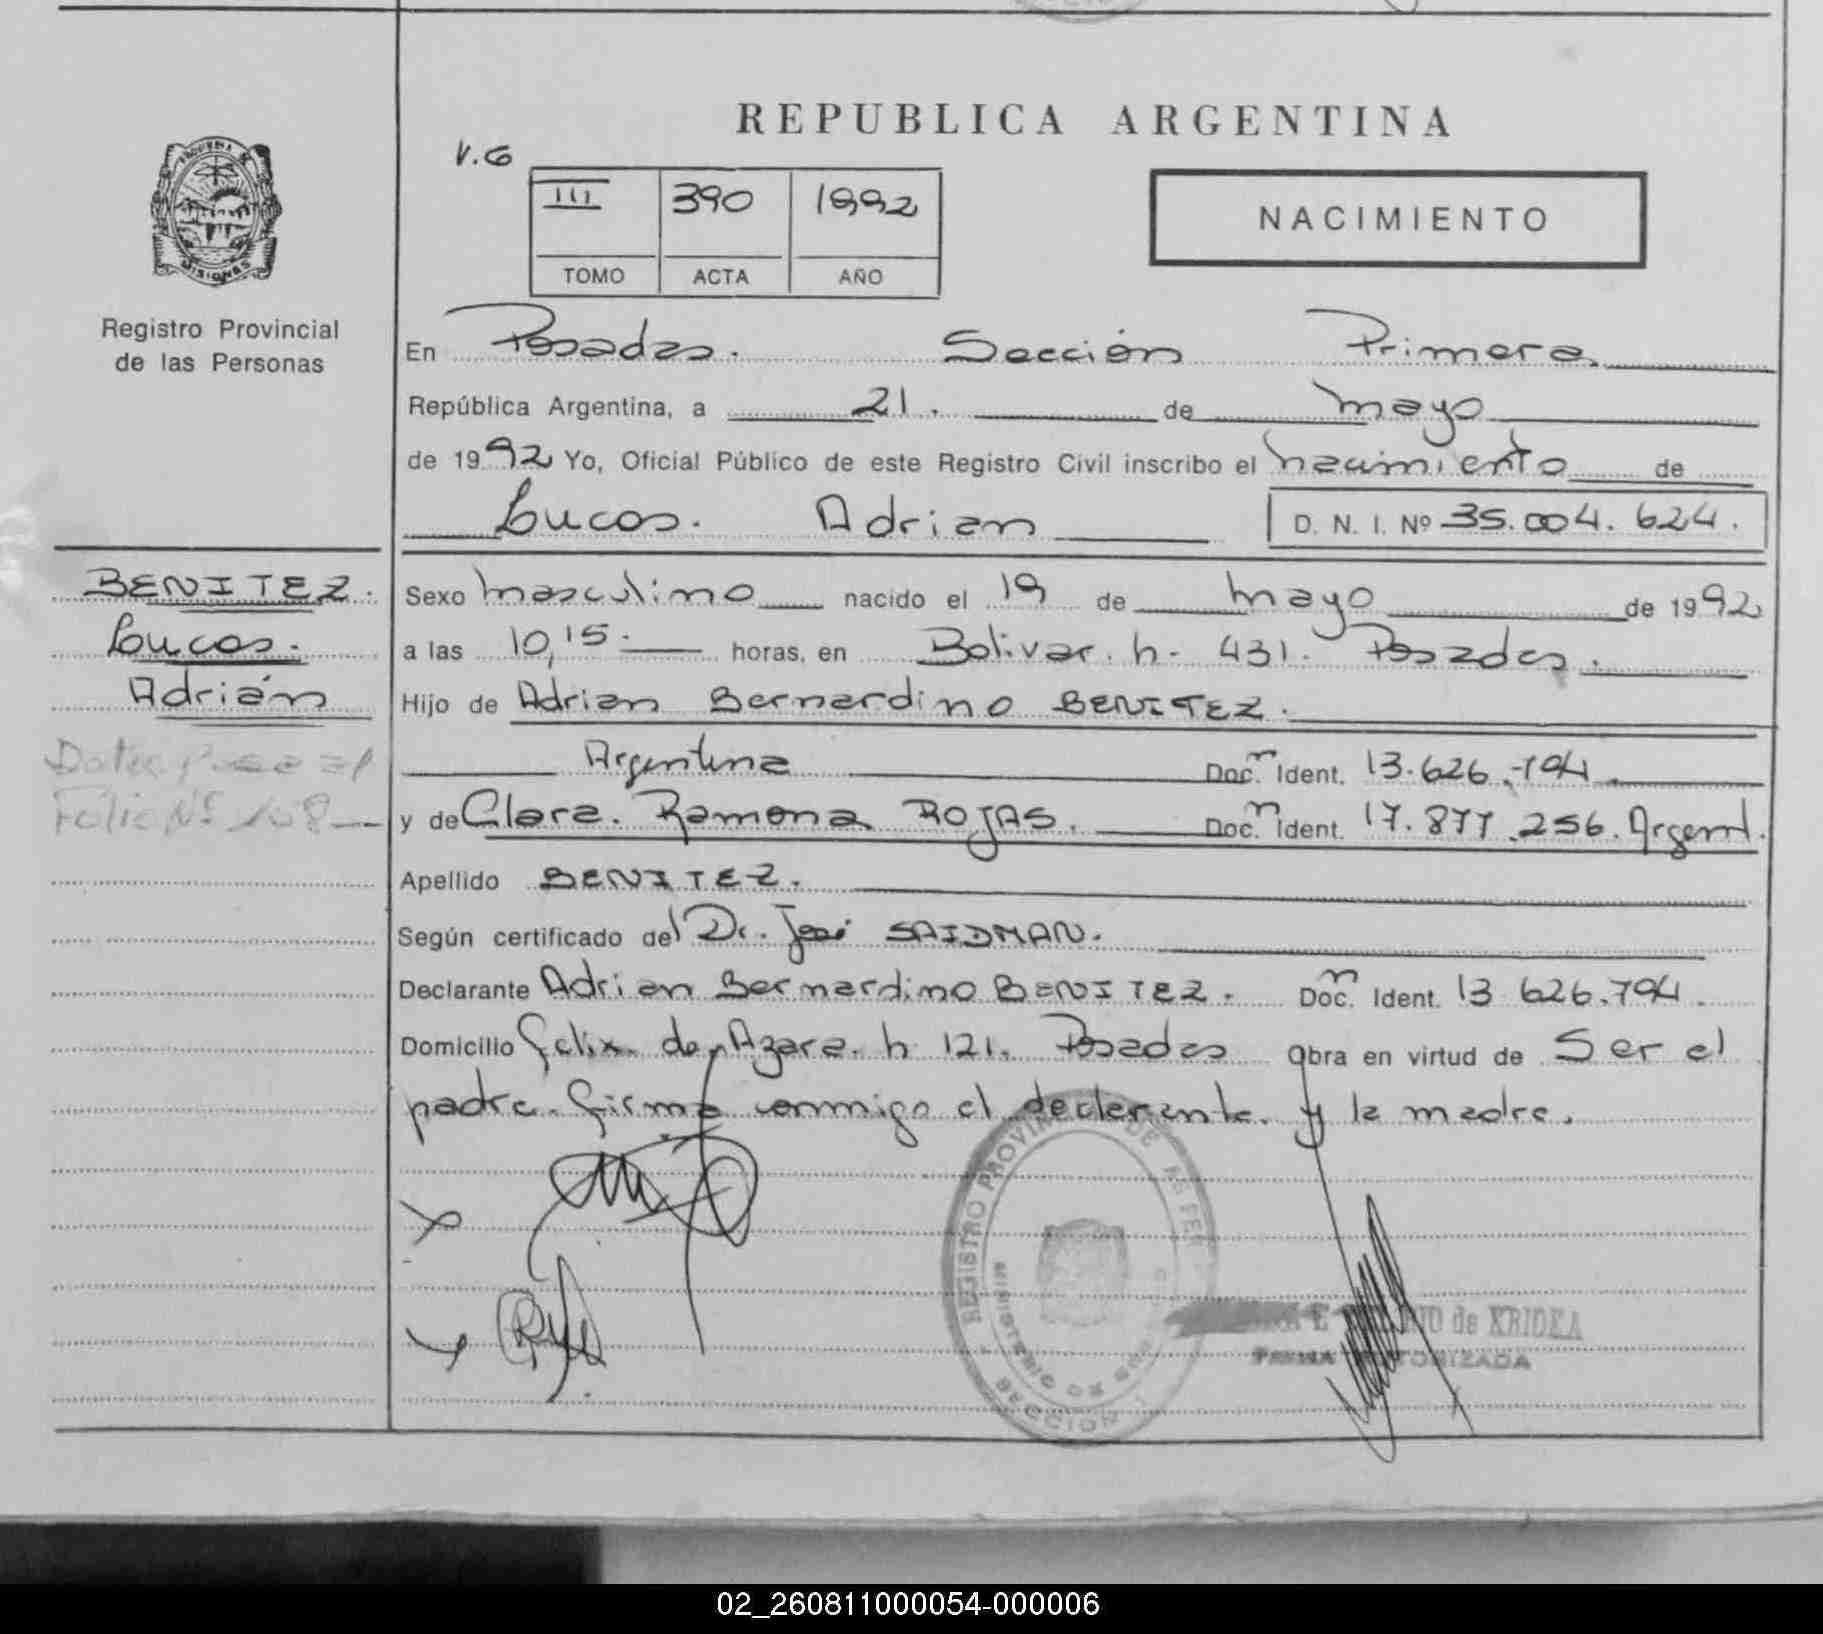 REPUBLICA ARGENTINA
V.G
III 390 1992
TOMO ACTA AÑO
NACIMIENTO
PROVINCIA DE
MISIONES
Registro Provincial
de las Personas
En Posadas. Sección Primera
República Argentina, a 21. de mayo
de 1992 Yo, Oficial Público de este Registro Civil inscribo el nacimiento de
Lucas. Adrian D. N. I. Nº 35.004.624.
BENITEZ.
Lucas.
Adrián
Sexo masculino nacido el 19 de mayo de 1992
a las 10,15 horas, en Bolivar. h. 431. Posadas.
Hijo de Adrian Bernardino BENITEZ.
Argentina Doc.n Ident. 13.626.794.
Folio Nº 108
y de Clara. Ramona ROJAS. Doc.n Ident. 17.877.256. Argent.
Apellido BENITEZ.
Según certificado del Dr. José SAIDMAN.
Declarante Adrian Bernardino BENITEZ. Doc.n Ident. 13 626.794.
Domicilio Felix de Azara. h 121. Posadas Obra en virtud de Ser el
padre. firma conmigo el declarante. y la madre.
REGISTRO PROVINCIAL DE
SECCION 1
de KRIOKA
FIRMA AUTORIZADA
02_260811000054-000006